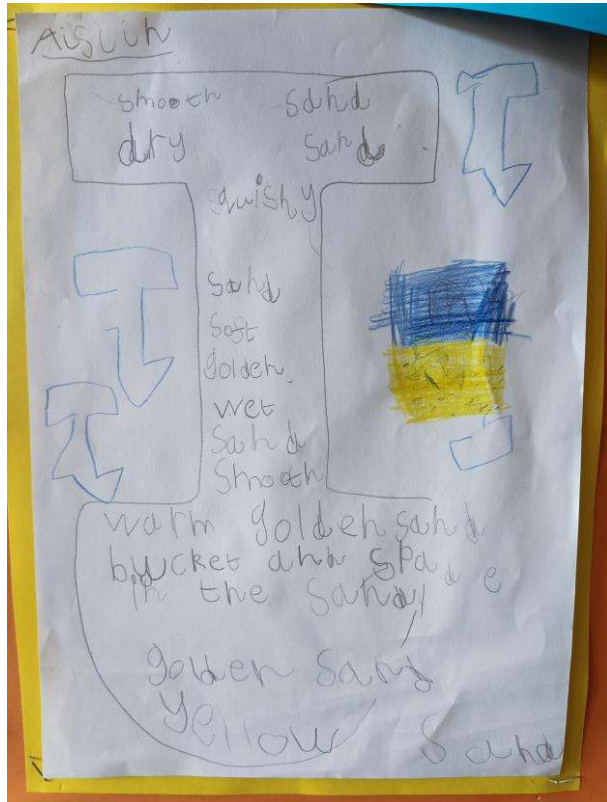 Aislin
smooth sand
dry sand
squishy
sand
soft
golden
wet
sand
smooth
warm golden sand
bucket and spade
in the sand
golden sand
yellow sand